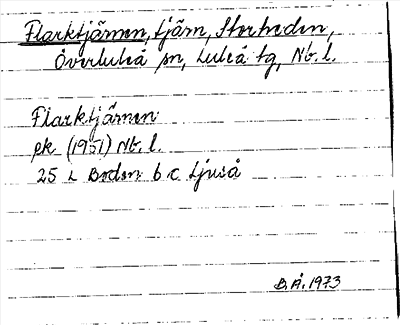 Flarktjärnen, tjärn, Storheden,
Överluleå sn, Luleå tg, Nb. l.
Flarktjärnen
ek (1951) Nb. l.
25 L Boden b c Ljuså
B.Å. 1973